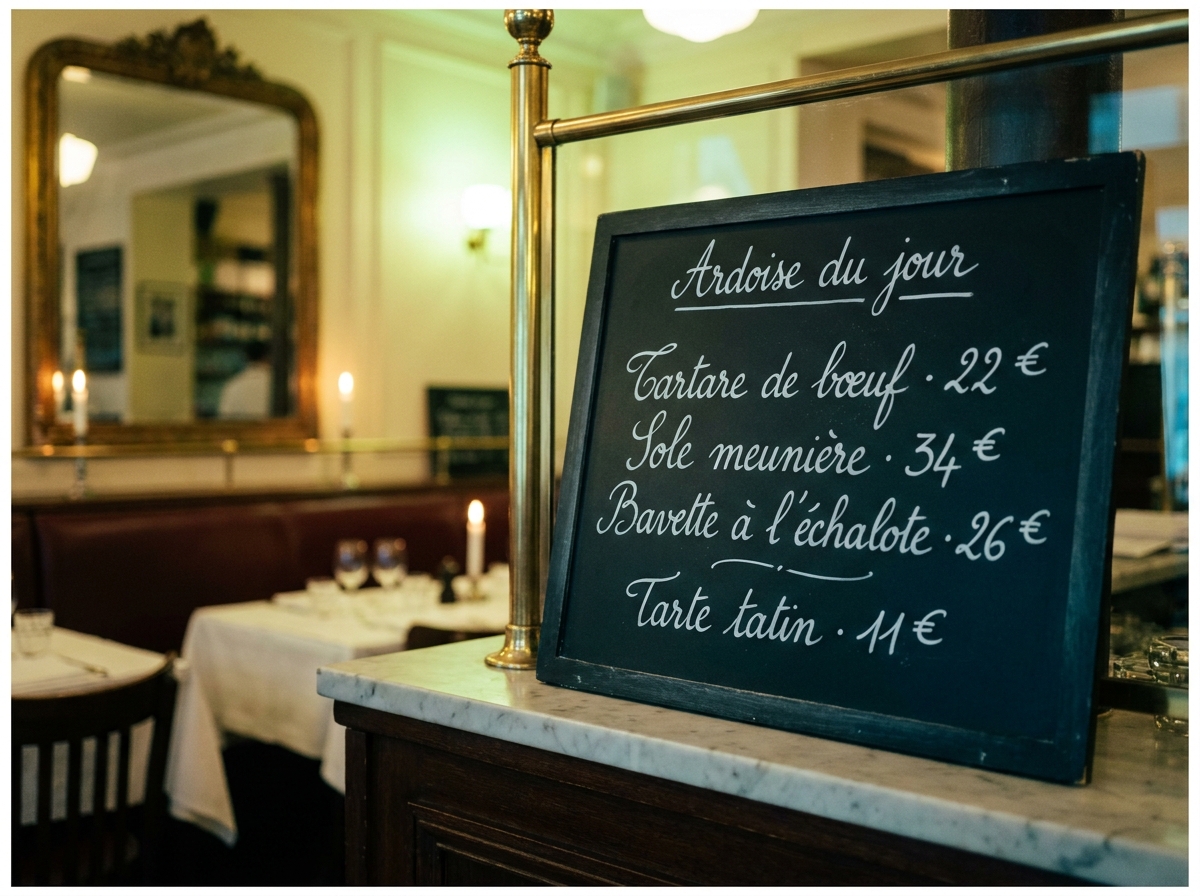 Ardoise du jour
Tartare de bœuf · 22 €
Sole meunière · 34 €
Bavette à l'échalote · 26 €
Tarte tatin · 11 €